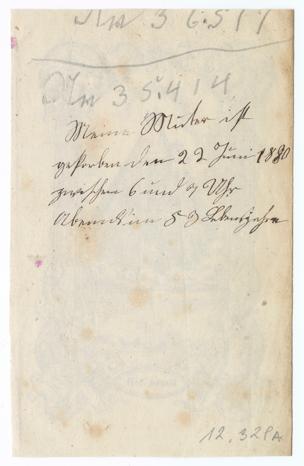 Nr 3 6.517
Nr 3 5.414
Meine Mutter ist
gestorben den 22 Juni 1880
zwischen 6 und 7 Uhr
Abends im 53 Lebensjahre
12.329A